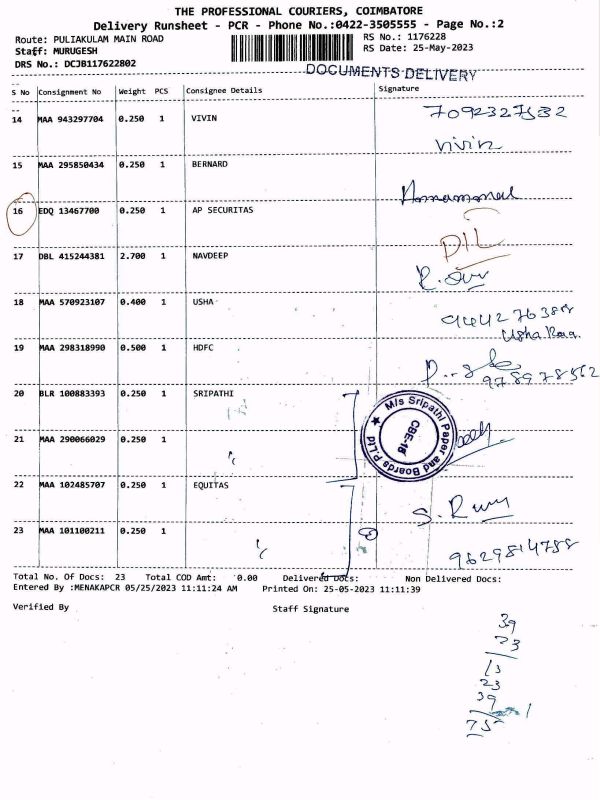 THE PROFESSIONAL COURIERS, COIMBATORE
Delivery Runsheet - PCR - Phone No.:0422-3505555 - Page No.:2
Route: PULIAKULAM MAIN ROAD RS No.: 1176228
Staff: MURUGESH RS Date: 25-May-2023
DRS No.: DCJB117622802
DOCUMENTS DELIVERY
S No Consignment No Weight PCS Consignee Details Signature
14 MAA 943297704 0.250 1 VIVIN 7092327532
vivin
15 MAA 295850434 0.250 1 BERNARD
16 EDQ 13467700 0.250 1 AP SECURITAS
D/L
17 DBL 415244381 2.700 1 NAVDEEP
18 MAA 570923107 0.400 1 USHA
Usha
19 MAA 298318990 0.500 1 HDFC
20 BLR 100883393 0.250 1 SRIPATHI
M/s Sripathi Paper and Boards P.Ltd
CBE-15
21 MAA 290066029 0.250 1
22 MAA 102485707 0.250 1 EQUITAS
23 MAA 101100211 0.250 1
9629814788
Total No. Of Docs: 23 Total COD Amt: 0.00 Delivered Docs: Non Delivered Docs:
Entered By :MENAKAPCR 05/25/2023 11:11:24 AM Printed On: 25-05-2023 11:11:39
Verified By Staff Signature
39
23
13
23
39
75